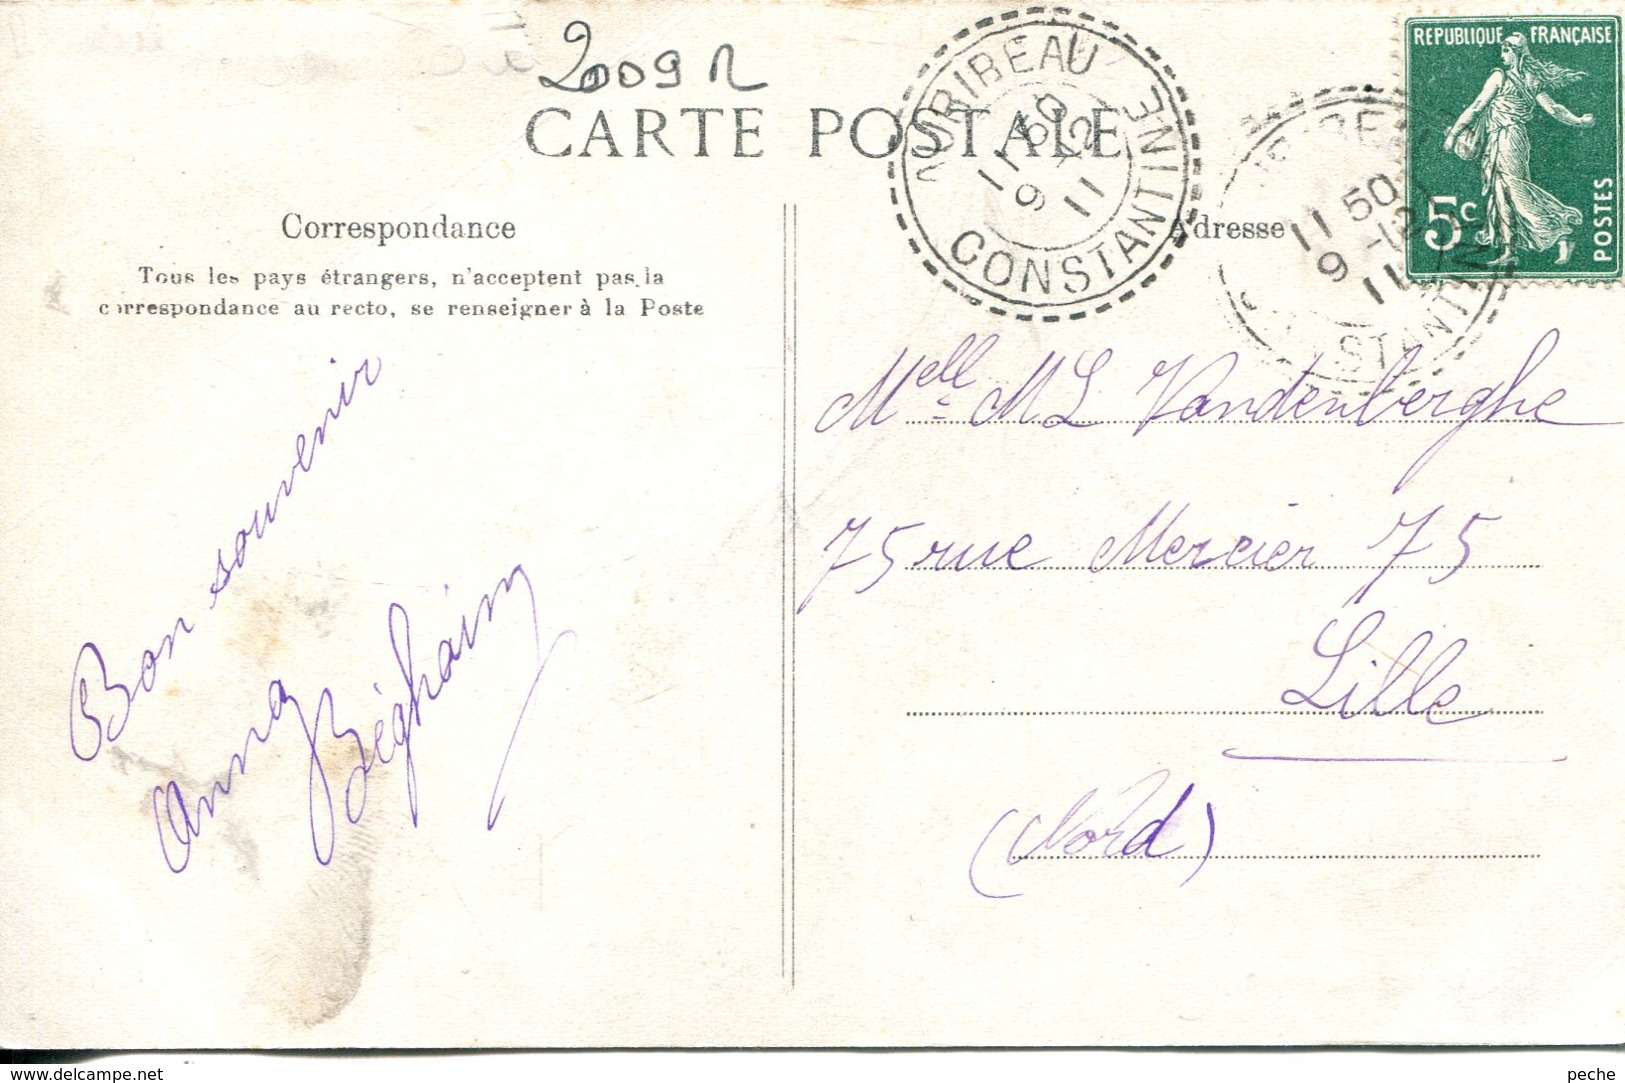 2009 n
CARTE POSTALE
AURIBEAU
11 50
9 -12
11
CONSTANTINE
REPUBLIQUE FRANÇAISE
5c
POSTES
11 50
9 -12
11
Correspondance
Tous les pays étrangers, n'acceptent pas la
correspondance au recto, se renseigner à la Poste
Adresse
Bon souvenir
Anna
Béghain
Melle ML Vandenberghe
75 rue Mercier 75
Lille
(Nord)
www.delcampe.net
peche